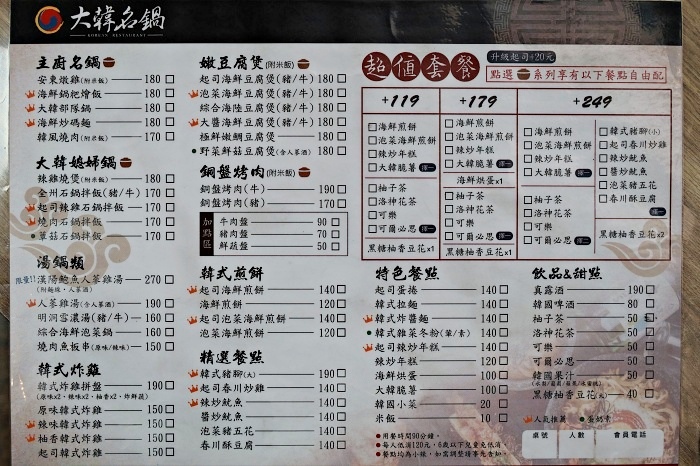 大韓名鍋
KOREAN RESTAURANT
主廚名鍋
安東燉雞(附米飯) 180
海鮮鍋粑燴飯 180
大韓部隊鍋 180
海鮮炒碼麵 180
韓風燒肉(附米飯) 170
大韓媳婦鍋
辣雞燒煲(附米飯) 180
全州石鍋拌飯(豬/牛) 170
起司辣雞石鍋拌飯 170
燒肉石鍋拌飯 170
蕈菇石鍋拌飯 170
湯鍋類
漢陽鮑魚人蔘雞湯 270
人蔘雞湯(含人蔘酒) 190
明洞雪濃湯(豬/牛) 160
綜合海鮮泡菜鍋 160
燒肉魚板串(原味/辣味) 150
韓式炸雞
韓式炸雞拼盤 190
(原味x2、辣味x2、柚香x2、炸鮮蔬)
原味韓式炸雞 150
辣味韓式炸雞 150
柚香韓式炸雞 150
起司韓式炸雞 150
嫩豆腐煲(附米飯)
起司海鮮豆腐煲(豬/牛) 180
泡菜海鮮豆腐煲(豬/牛) 180
綜合海陸豆腐煲(豬/牛) 180
大醬海鮮豆腐煲(豬/牛) 180
極鮮嫩鯛豆腐煲 180
野菜鮮菇豆腐煲(含人蔘酒) 180
銅盤烤肉(附米飯)
銅盤烤肉(牛) 190
銅盤烤肉(豬) 170
加點區
牛肉盤 90
豬肉盤 70
鮮蔬盤 50
韓式煎餅
起司海鮮煎餅 140
海鮮煎餅 120
起司泡菜海鮮煎餅 140
泡菜海鮮煎餅 120
精選餐點
韓式豬腳(大) 190
起司春川炒雞 140
辣炒魷魚 140
醬炒魷魚 140
泡菜豬五花 140
春川酥豆腐 140
超值套餐
升級起司+20元
點選 系列享有以下餐點自由配
+119
海鮮煎餅
泡菜海鮮煎餅
辣炒年糕
大韓脆薯 擇一
柚子茶
洛神花茶
可樂
可爾必思 擇一
黑糖柚香豆花x1
+179
海鮮煎餅
泡菜海鮮煎餅
辣炒年糕
大韓脆薯 擇一
海鮮烘蛋x1
柚子茶
洛神花茶
可樂
可爾必思 擇一
黑糖柚香豆花x1
+249
海鮮煎餅
泡菜海鮮煎餅
辣炒年糕
大韓脆薯 擇一
柚子茶
洛神花茶
可樂
可爾必思 擇二
韓式豬腳(小)
起司春川炒雞
辣炒魷魚
醬炒魷魚
泡菜豬五花
春川酥豆腐 擇一
黑糖柚香豆花x2
特色餐點
起司蛋捲 140
韓式拉麵 140
韓式炸醬麵 140
韓式雜菜冬粉(葷/素) 140
起司辣炒年糕 140
辣炒年糕 120
海鮮烘蛋 100
大韓脆薯 100
韓國小菜 20
米飯 10
●用餐時間90分鐘。
●每人低消120元，6歲以下兒童免低消
●餐點均為小辣，如需調整請事先告知。
飲品&甜點
真露酒 190
韓國啤酒 80
柚子茶 50
洛神花茶 50
可樂 50
可爾必思 50
韓國果汁 50
黑糖柚香豆花(大) 40
人氣推薦 ●蛋奶素
桌號 人數 會員電話